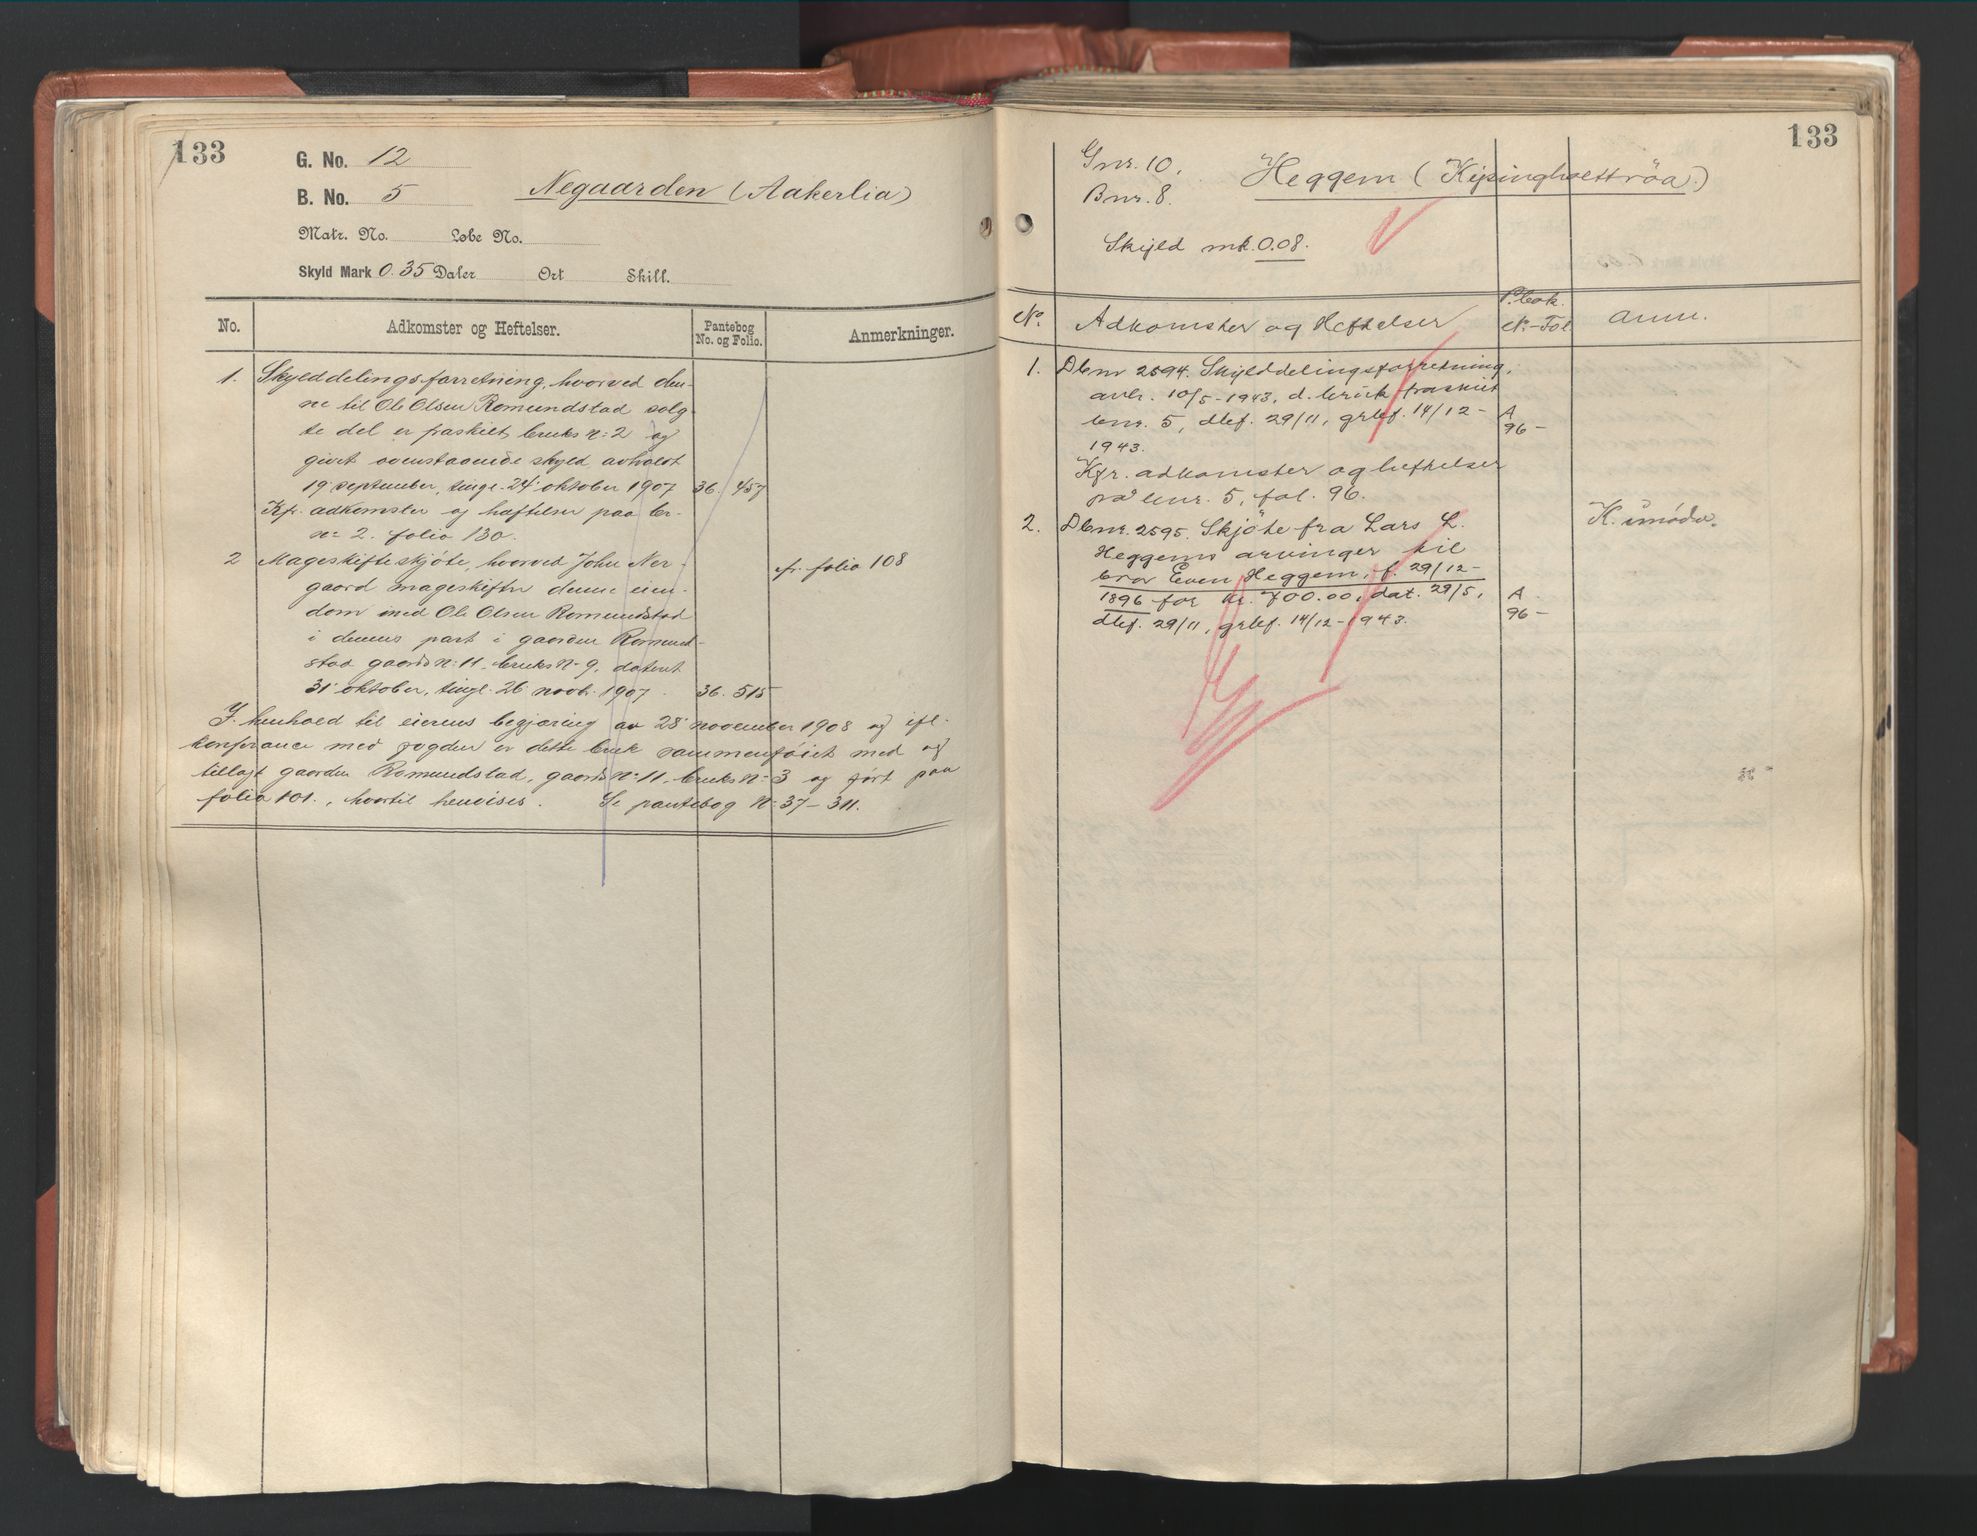 133
G. No. 12
B. No. 5
Negaarden (Aakerlia)
Matr. No. Løbe No.
Skyld Mark 0.35 Daler Ort Skill.
No. Adkomster og Heftelser. Pantebog No. og Folio. Anmerkninger.
1. Skylddelingsforretning, hvorved den-
ne til Ole Olsen Romundstad solg-
te del er fraskilt bruks nr 2 og
givet ovenstaaende skyld avholdt
19 september, tingl. 24' oktober 1907 36. 457
Kfr. adkomster og hæftelser paa br-
nr 2. folio 130.
2 Mageskifteskjøte, hvorved John Ner-
gaard mageskifter denne eien-
dom med Ole Olsen Romundstad
i dennes part i gaarden Romund-
stad gaards nr 11. bruks nr 9, datert
31' oktober, tingl. 26' novbr. 1907. 36. 515
fr. folio 108
I henhold til eierens begjæring av 28' november 1908 og efl.
konferance med fogden er dette bruk sammenføiet med og
tillagt gaarden Romundstad, gaards nr 11. bruks nr 3 og ført paa
folio 101., hvortil henvises. Se pantebog nr 37 – 311.
133
Gnr. 10.
Bnr. 8.
Heggem (
Skyld mk. 0.08.
No. Adkomster og Heftelser P.bok. Nr.-Fol anm.
1. Dbnr 2594. Skylddelingsforretning,
avh. 10/5-1943, d. bruk fraskilt
bnr. 5, dbf. 29/11, grbf. 14/12-
1943.
A
96-
Kfr. adkomster og heftelser
på bnr. 5, fol. 96.
2. Dbnr. 2595. Skjöte fra Lars L.
Heggems arvinger til
bror Even Heggem, f. 29/12-
1896 for kr. 700.00, dat. 29/5,
dbf. 29/11, grbf. 14/12-1943.
A
96-